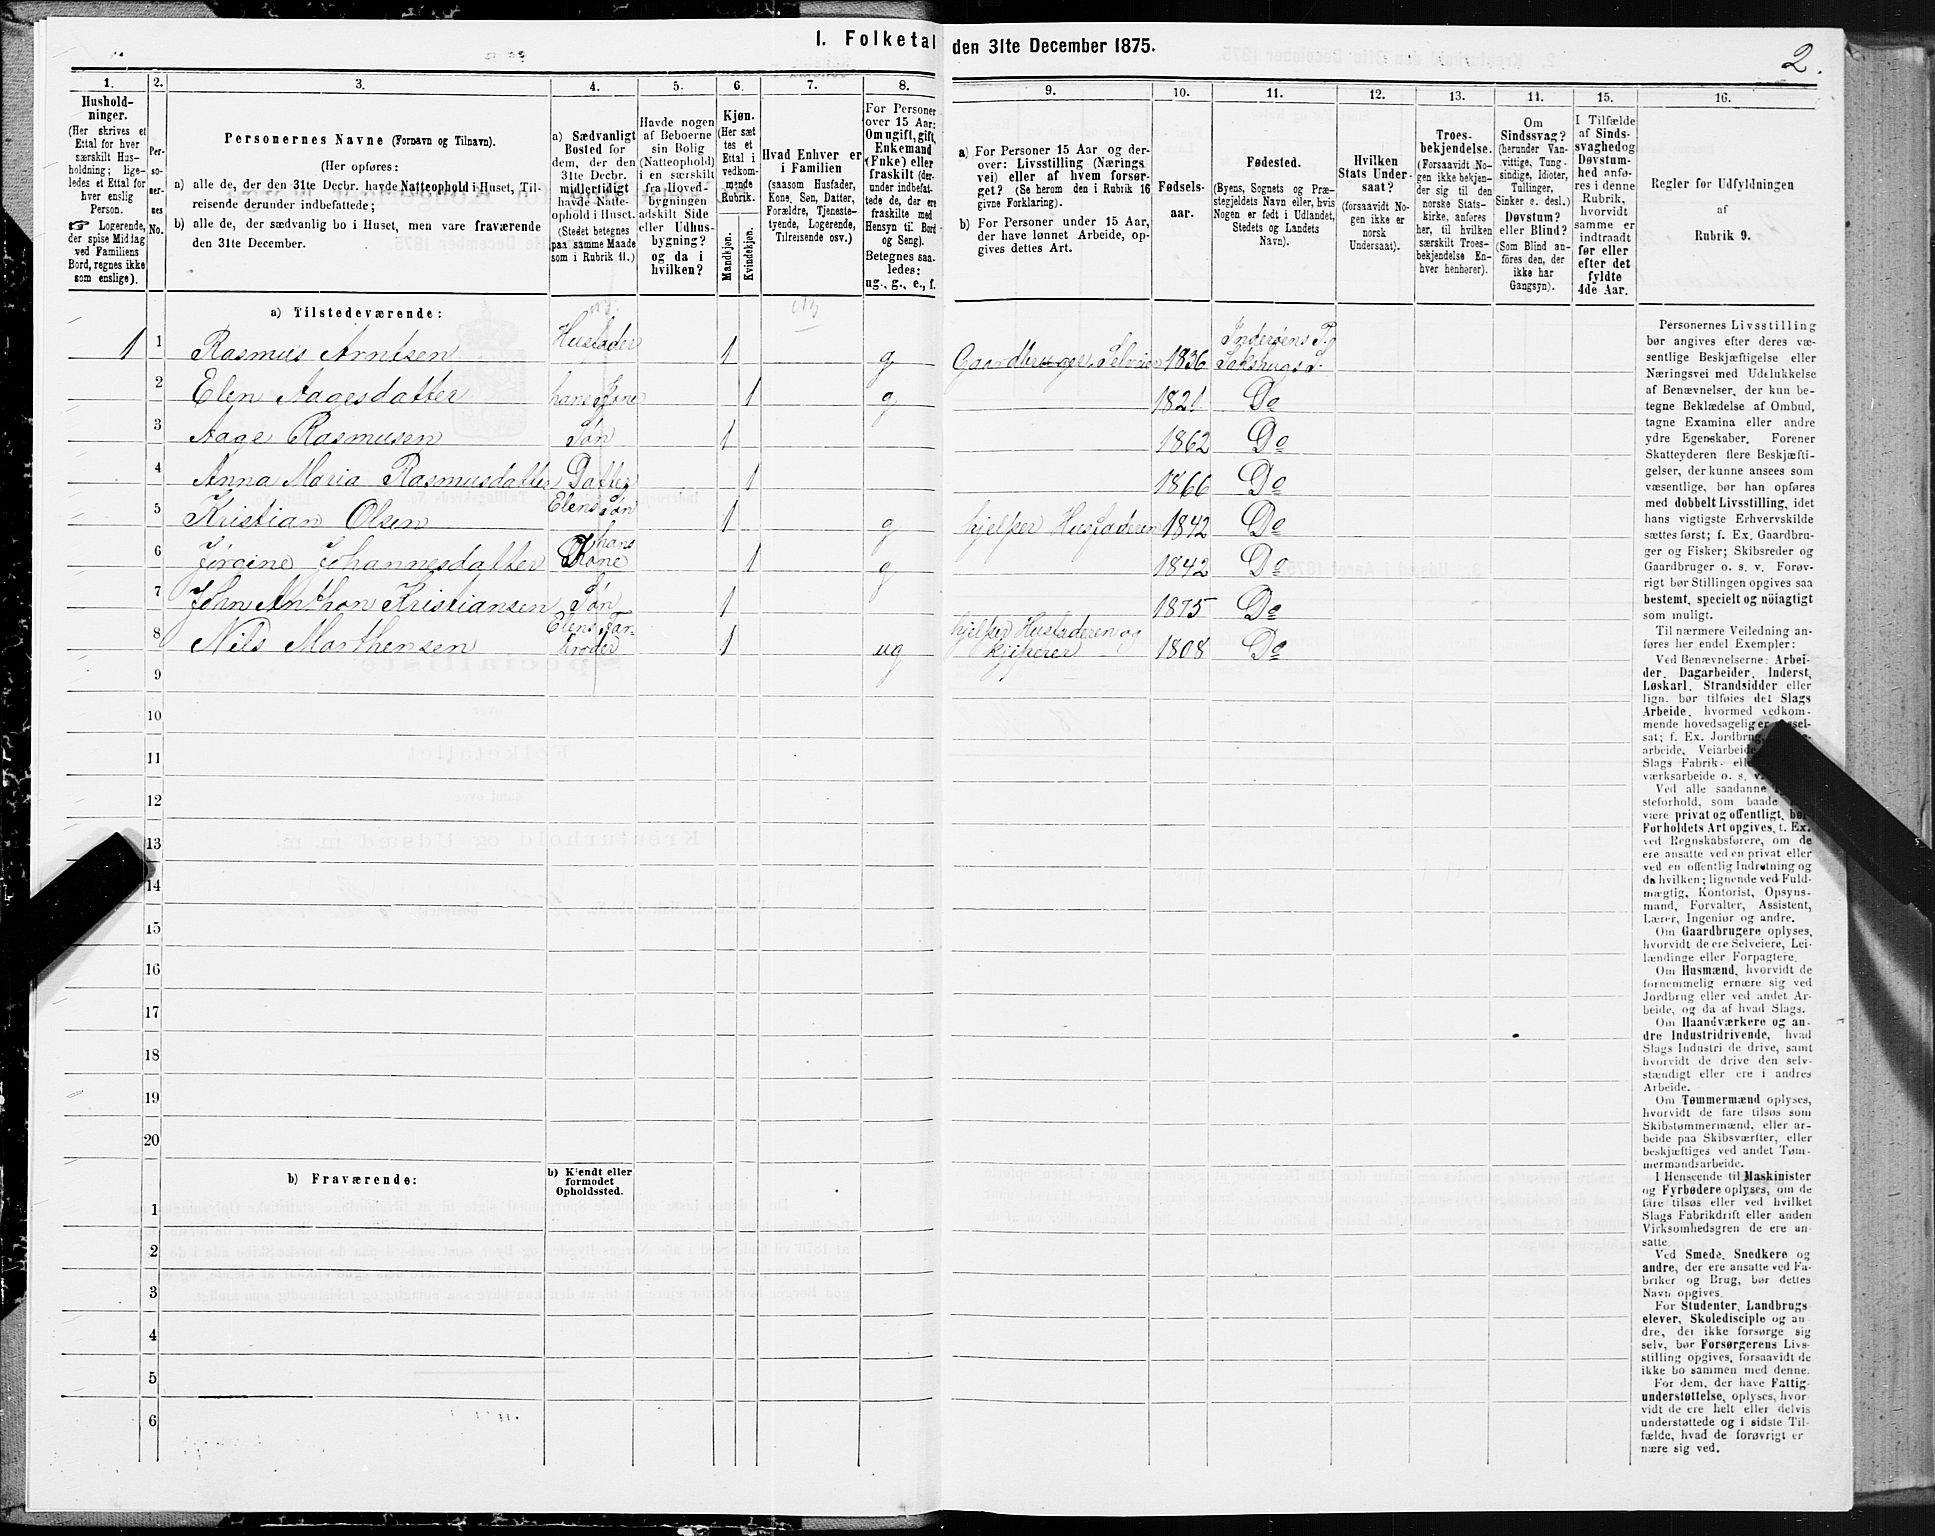 I. Folketal den 31te December 1875.
2.
1.
Hushold-
ninger.
(Her skrives et
Ettal for hver
særskilt Hus-
holdning; lige-
ledes et Ettal for
hver enslig
Person.
☞ Logerende,
der spise Middag
ved Familiens
Bord, regnes ikke
som enslige).
2.
Per-
so-
ner-
nes
No.
3.
Personernes Navne (Fornavn og Tilnavn).
(Her opføres:
a) alle de, der den 31te Decbr. havde Natteophold i Huset, Til-
reisende derunder indbefattede;
b) alle de, der sædvanlig bo i Huset, men vare fraværende
den 31te December.
4.
a) Sædvanligt
Bosted for
dem, der den
31te Decbr.
midlertidigt
havde Natte-
ophold i Huset.
(Stedet betegnes
paa samme Maade
som i Rubrik 11.)
5.
Havde nogen
af Beboerne
sin Bolig
(Natteophold)
i en særskilt
fra Hoved-
bygningen
adskilt Side
eller Udhus-
bygning?
og da i
hvilken?
6.
Kjøn.
(Her sæt
tes et
Ettal i
vedkom-
mende
Rubrik.
Mandkjøn.
Kvindekjøn.
7.
Hvad Enhver er
i Familien
(saasom Husfader,
Kone, Søn, Datter,
Forældre, Tjeneste-
tyende, Logerende,
Tilreisende osv.)
8.
For Personer
over 15 Aar:
Om ugift, gift,
Enkemand
(Enke) eller
fraskilt (der-
under indbefat-
tede de, der ere
fraskilte med
Hensyn til Bord
og Seng).
Betegnes saa-
ledes:
ug., g., e., f.
9.
a) For Personer 15 Aar og der-
over: Livsstilling (Nærings
vei) eller af hvem forsør-
get? (Se herom den i Rubrik 16
givne Forklaring).
b) For Personer under 15 Aar,
der have lønnet Arbeide, op-
gives dettes Art.
10.
Fødsels-
aar.
11.
Fødested.
(Byens, Sognets og Præ-
stegjeldets Navn eller, hvis
Nogen er født i Udlandet,
Stedets og Landets
Navn).
12.
Hvilken
Stats Under-
saat?
(forsaavidt No-
gen ikke er
norsk
Undersaat).
13.
Troes-
bekjendelse.
(Forsaavidt No-
gen ikke bekjen-
der sig til den
norske Stats-
kirke, anføres
her, til hvilken
særskilt Troes-
bekjendelse En-
hver henhører).
14.
Om
Sindssvag?
(herunder Van-
vittige, Tung-
sindige, Idioter,
Tullinger,
Sinker o. desl.)
Døvstum?
eller Blind?
(Som Blind an-
föres den, der
ikke har
Gangsyn).
15.
I Tilfælde
af Sinds-
svaghed og
Døvstum-
hed anfø-
res i denne
Rubrik,
hvorvidt
samme er
indtraadt
før eller
efter det
fyldte
4de Aar.
16.
Regler for Udfyldningen
af
Rubrik 9.
a) Tilstedeværende:
1 1 Rasmus Arntsen Husfader 1 g Gaardbruger, Selveier 1836 Inderøens Pg Sakshugsø.
2 Elen Aagesdatter hans Kone 1 g 1821 Do
3 Aage Rasmusen Søn 1 1862 Do
4 Anna Maria Rasmusdatter Datter 1 1866 Do
5 Kristian Olsen Elens Søn 1 g hjelper Husfaderen 1842 Do
6 Jørgine Johannesdatter hans Kone 1 g 1842 Do
7 John Anthon Kristiansen Søn 1 1875 Do
8 Nils Marthensen Elens Farbroder 1 ug hjelper Husfaderen og 1808 Do
9
10
11
12
13
14
15
16
17
18
19
20
b) Fraværende:
b) Kjendt eller
formodet
Opholdssted.
1
2
3
4
5
6
Personernes Livsstilling
bør angives efter deres væ-
sentlige Beskjæftigelse eller
Næringsvei med Udelukkelse
af Benævnelser, der kun be-
tegne Beklædelse af Ombud,
tagne Examina eller andre
ydre Egenskaber. Forener
Skatteyderen flere Beskjæfti-
gelser, der kunne ansees som
væsentlige, bør han opføres
med dobbelt Livsstilling, idet
hans vigtigste Erhvervskilde
sættes først; f. Ex. Gaardbru-
ger og Fisker; Skibsreder og
Gaardbruger o. s. v. Forøv-
rigt bør Stillingen opgives saa
bestemt, specielt og nöiagtigt
som muligt.
Til nærmere Veiledning an-
føres her endel Exempler:
Ved Benævnelserne: Arbei-
der, Dagarbeider, Inderst,
Løskarl, Strandsidder eller
lign. bør tilføies det Slags
Arbeide, hvormed vedkom-
mende hovedsagelig er
sat; f. Ex. Jordbrug,
arbeide, Veiarbeide
Slags Fabrik- el
værksarbeide o. s. v.
Ved alle saadanne
steforhold, som baade
være privat og offentligt, bør
Forholdets Art opgives, t. Ex.
ved Regnskabsførere, om de
ere ansatte ved en privat eller
ved en offentlig Indretning og
da hvilken; lignende ved Fuld-
mægtig, Kontorist, Opsyns-
mand, Forvalter, Assistent,
Lærer, Ingeniør og andre.
Om Gaardbrugere oplyses,
hvorvidt de ere Selveiere, Lei-
lændinge eller Forpagtere.
Om Husmænd, hvorvidt de
fornemmelig ernære sig ved
Jordbrug eller ved andet Ar-
beide, og da af hvad Slags.
Om Haandværkere og an-
dre Industridrivende, hvad
Slags Industri de drive, samt
hvorvidt de drive den selv-
stændigt eller ere i andres
Arbeide.
Om Tømmermænd oplyses,
hvorvidt de fare tilsøs som
Skibstømmermænd, eller ar-
beide paa Skibsværfter, eller
beskjæftiges ved andet Tøm-
mermandsarbeide.
I Henseende til Maskinister
og Fyrbødere oplyses, om de
fare tilsøs eller ved hvilket
Slags Fabrikdrift eller anden
Virksomhedsgren de ere an-
satte.
Ved Smede, Snedkere og
andre, der ere ansatte ved Fa-
briker og Brug, bør dettes
Navn opgives.
For Studenter, Landbrugs
elever, Skoledisciple og an
dre, der ikke forsørge sig
selv, bør Forsørgerens Livs-
stilling opgives, forsaavidt de
ikke bo sammen med denne.
For dem, der have Fattig-
understøttelse, oplyses, hvor-
vidt de ere helt eller delvis
understøttede og i sidste Til-
fælde, hvad de forøvrigt er
nære sig ved.